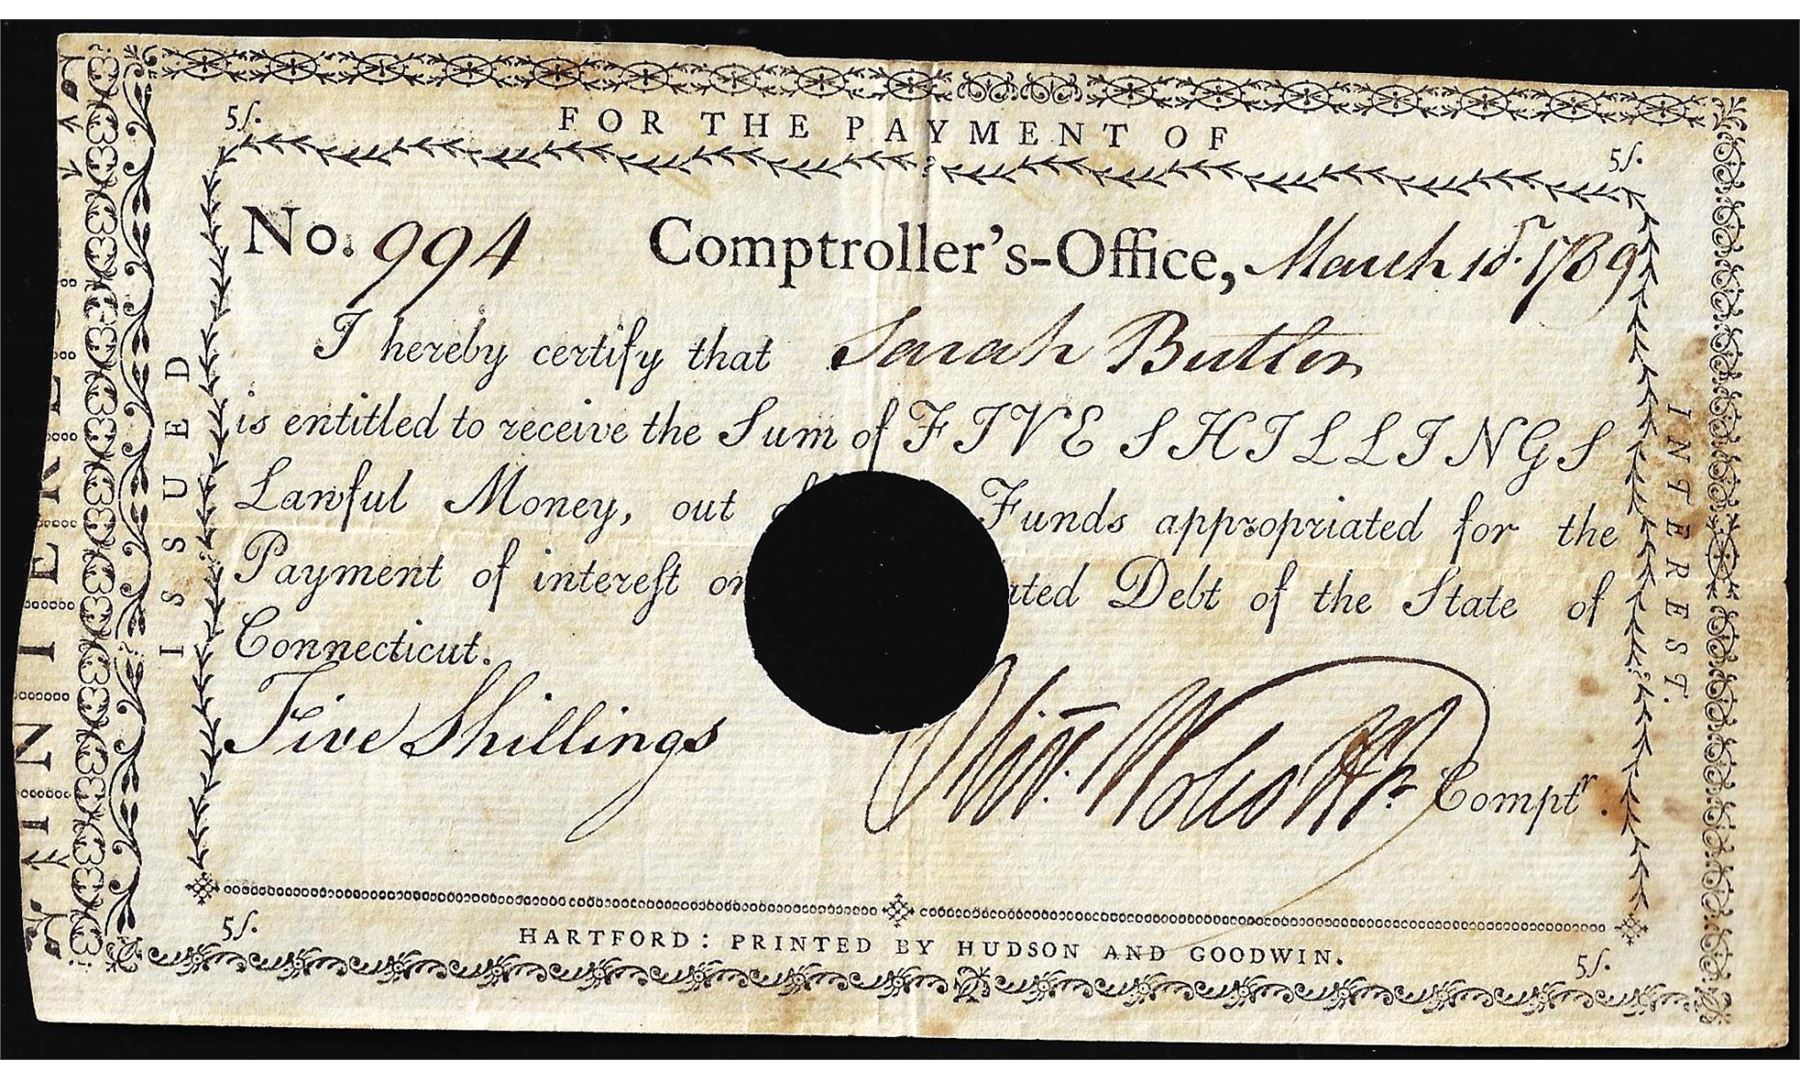 FOR THE PAYMENT OF
5ſ.
5ſ.
No. 994 Comptroller's-Office, March 1789
I hereby certify that Sarah Butler
is entitled to receive the Sum of FIVE SHILLINGS
Lawful Money, out Funds appropriated for the
Payment of intereſt on Debt of the State of
Connecticut.
Five Shillings
Olivr. Wolcott Jr Comptr.
5ſ.
5ſ.
HARTFORD: PRINTED BY HUDSON AND GOODWIN.
ISSUED
INTEREST.